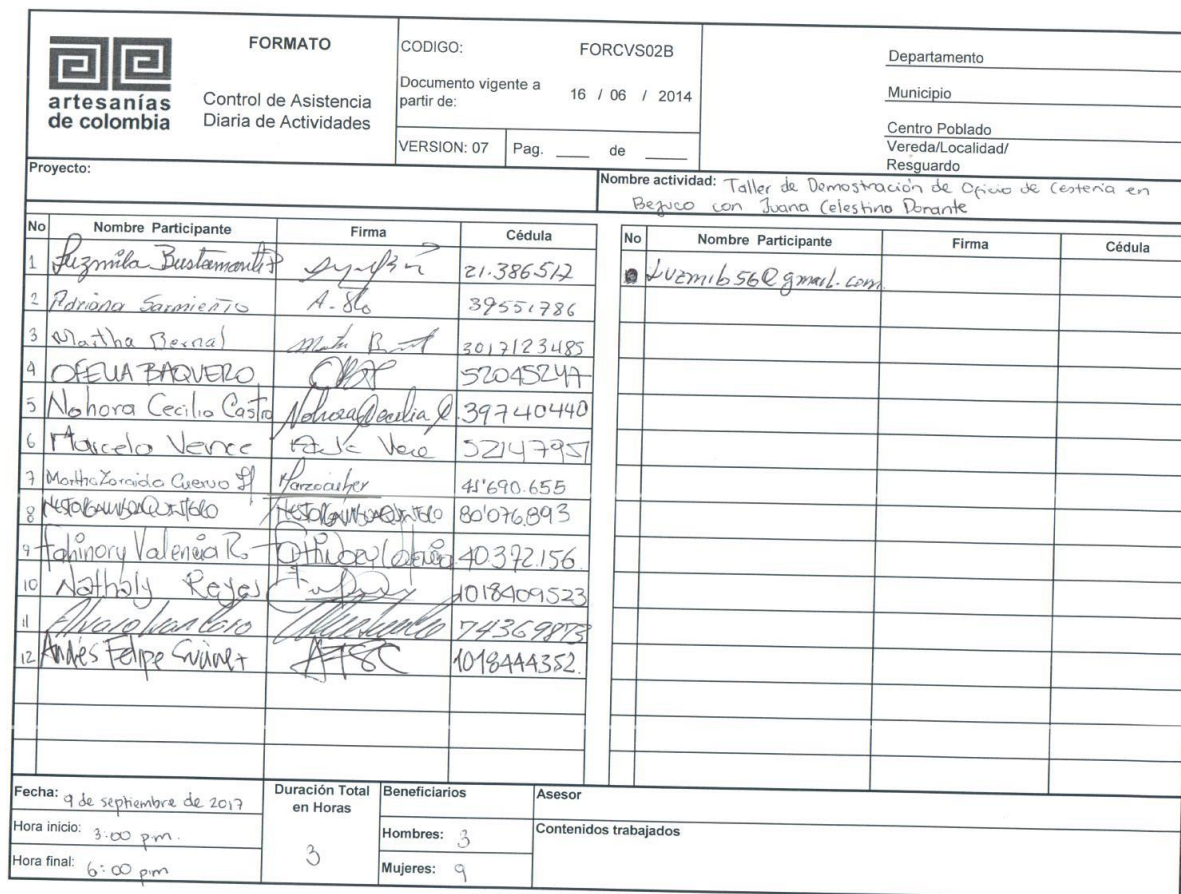 artesanías
de colombia
FORMATO
Control de Asistencia
Diaria de Actividades
CODIGO: FORCVS02B
Documento vigente a
partir de: 16 / 06 / 2014
VERSION: 07 Pag. ____ de ____
Departamento
Municipio
Centro Poblado
Vereda/Localidad/
Resguardo
Proyecto:
Nombre actividad: Taller de Demostración de Oficio de Cestería en
Bejuco con Juana Celestino Dorante
No Nombre Participante Firma Cédula
1 Luzmila Bustamante 21.386.512
2 Adriana Sarmiento A. Sto 39551786
3 Martha Bernal 3017123485
4 OFELIA BAQUERO 52045247
5 Nohora Cecilia Castro Nohora Cecilia C. 39740440
6 Marcela Vence 52147957
7 Martha Zoraida Cuervo 41'690.655
8 80'076.893
9 Fahinory Valencia R 40.392.156
10 Nathaly Reyes 1018409523
11 Alvaro Ivan Caro 74369873
12 Andrés Felipe AFSC 1018444352.
No Nombre Participante Firma Cédula
Luzmib56@gmail.com
Fecha: 9 de septiembre de 2017
Hora inicio: 3:00 p.m.
Hora final: 6:00 p.m
Duración Total
en Horas
3
Beneficiarios
Hombres: 3
Mujeres: 9
Asesor
Contenidos trabajados